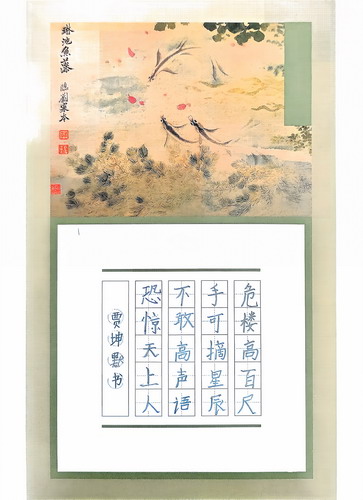 琳池魚藻
臨劉寀本
危楼高百尺
手可摘星辰
不敢高声语
恐惊天上人
贾坤默书